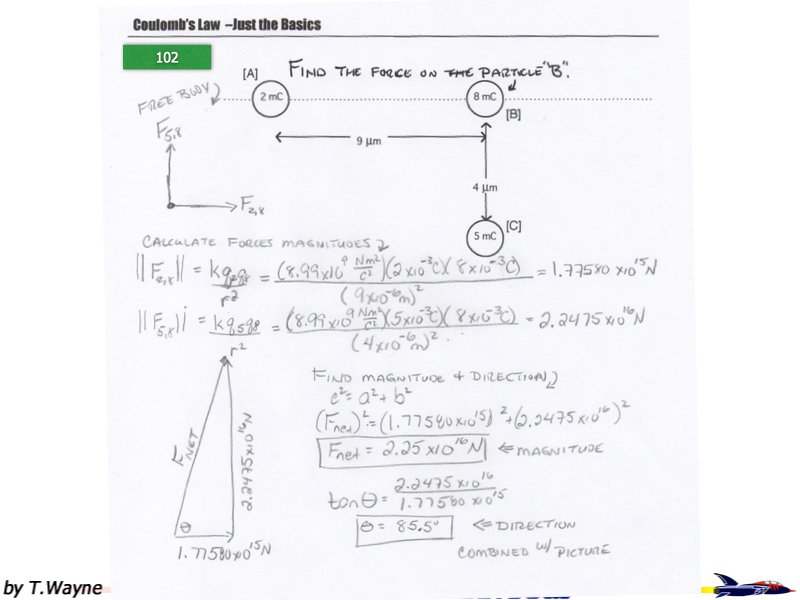 Coulomb's Law –Just the Basics
102
[A]
FIND THE FORCE ON THE PARTICLE "B".
FREE BODY
2 mC
8 mC
[B]
F5,8
9 µm
F2,8
4 µm
[C]
5 mC
CALCULATE FORCES MAGNITUDES
||F2,8|| = kq2q8/r² = (8.99x10⁹ Nm²/C²)(2x10⁻³C)(8x10⁻³C)/(9x10⁻⁶m)² = 1.77580 x10¹⁵N
||F5,8|| = kq5q8/r² = (8.99x10⁹ Nm²/C²)(5x10⁻³C)(8x10⁻³C)/(4x10⁻⁶m)² = 2.2475x10¹⁶N
FIND MAGNITUDE & DIRECTION
c² = a² + b²
(Fnet)² = (1.77580x10¹⁵)² + (2.2475x10¹⁶)²
Fnet = 2.25 x10¹⁶N ⇐ MAGNITUDE
FNET
2.2475x10¹⁶N
tanθ = 2.2475x10¹⁶/1.77580 x10¹⁵
θ
θ = 85.5° ⇐ DIRECTION
1.77580x10¹⁵N
COMBINED w/ PICTURE
by T.Wayne